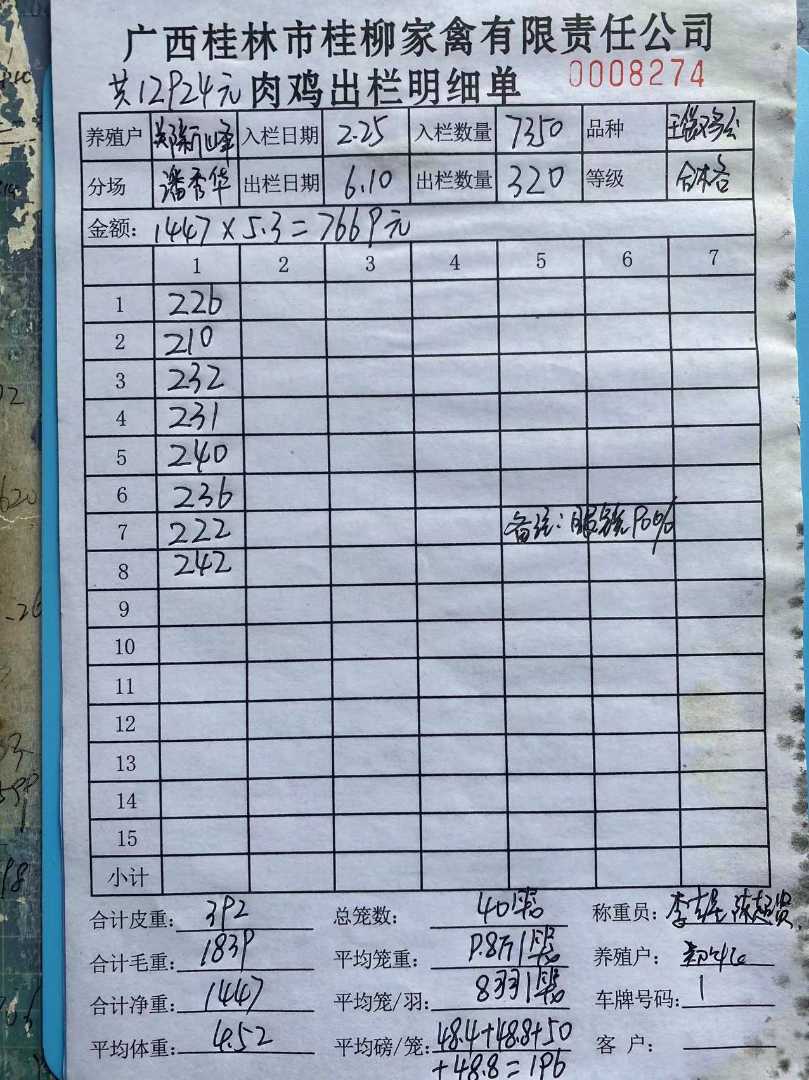 广西桂林市桂柳家禽有限责任公司
共12924元 肉鸡出栏明细单 0008274
养殖户 入栏日期 2.25 入栏数量 7350 品种
分场 潘秀华 出栏日期 6.10 出栏数量 320 等级 合格
金额: 1447×5.3=7669元
1 2 3 4 5 6 7
1 226
2 210
3 232
4 231
5 240
6 236
7 222 备注:
8 242
9
10
11
12
13
14
15
小计
合计皮重: 392 总笼数: 40 称重员:
合计毛重: 1839 平均笼重: 9.8斤/ 养殖户:
合计净重: 1447 平均笼/羽: 8羽/ 车牌号码: 1
平均体重: 4.52 平均磅/笼: 48.4+48.8+50 客 户:
+48.8=196